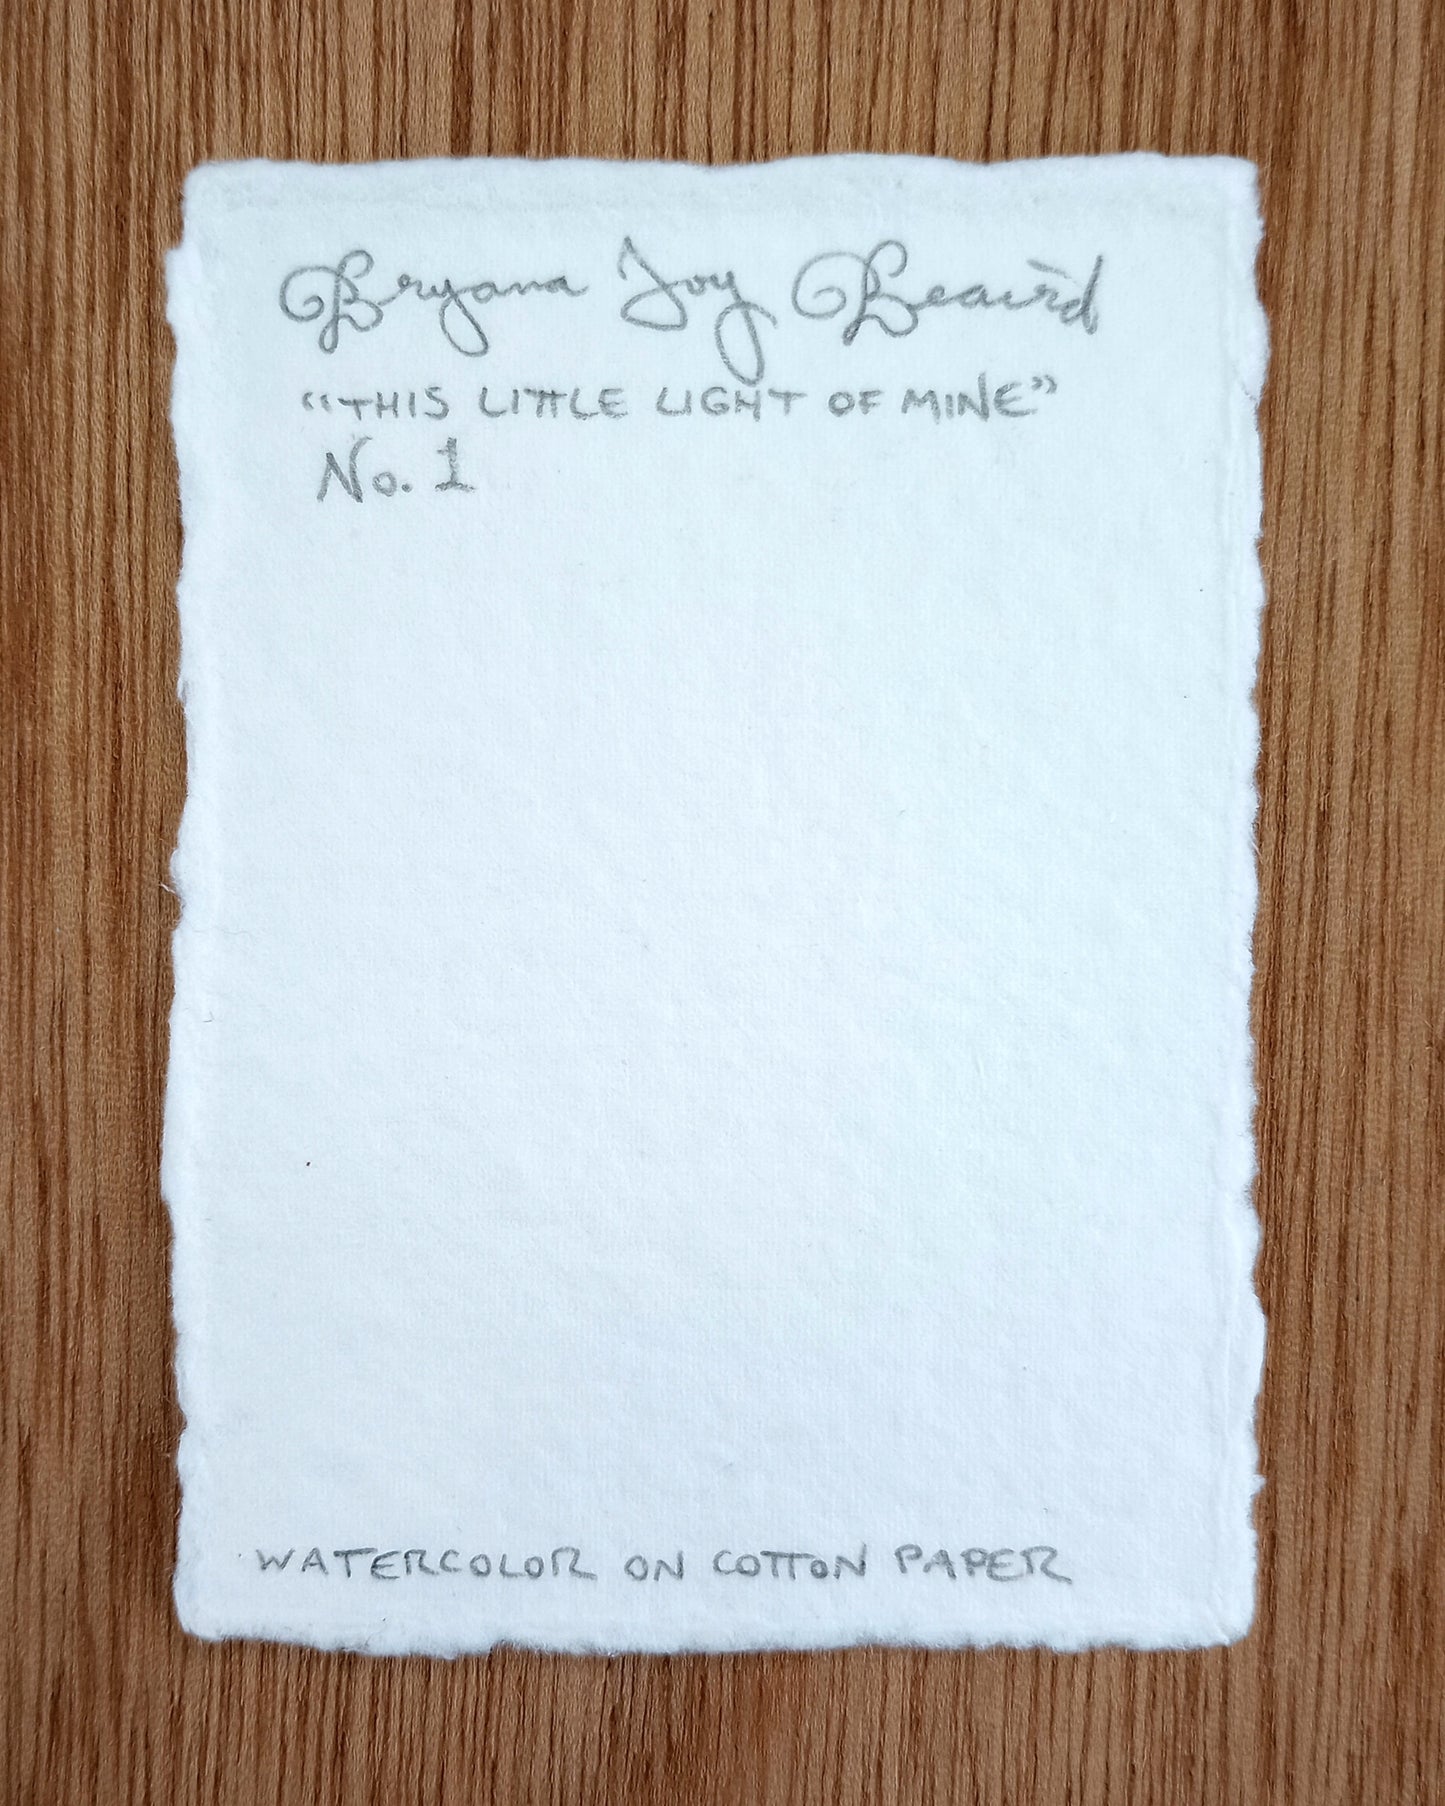 Bryana Joy Beaird
“THIS LITTLE LIGHT OF MINE”
No. 1
WATERCOLOR ON COTTON PAPER